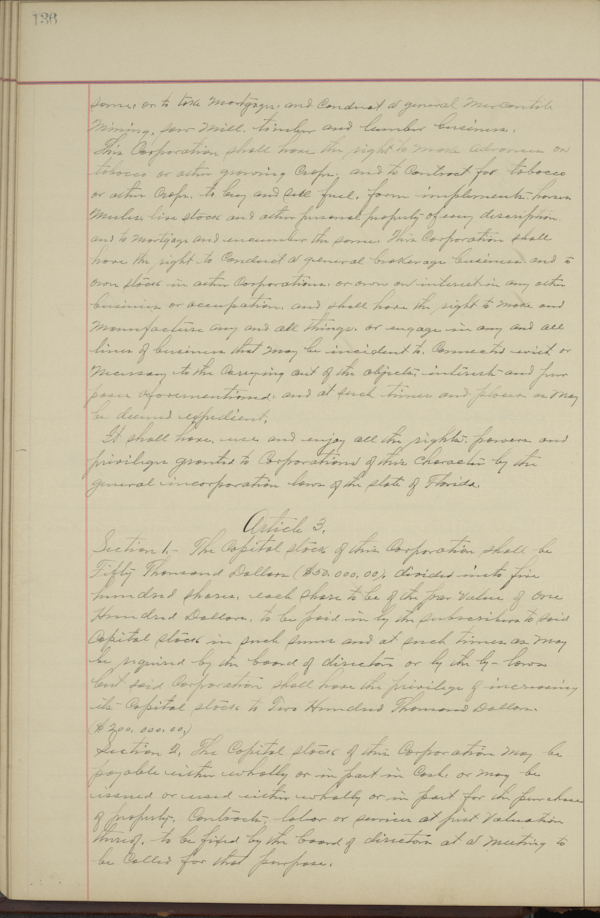 136
same, or to take mortgage, and Conduct a general Mercantile
Mining, saw mill, timber and lumber business.
This Corporation shall have the right to make advances on
tobacco or other growing Crops, and to Contract for tobacco
or other Crops, to buy and sell fuel, farm implements, horses
Mules, live stock and other personal property of every description
and to mortgage and encumber the same. This Corporation shall
have the right to Conduct a general brokerage business, and to
own stock in other Corporations, or own an interest in any other
business or occupation, and shall have the right to make and
Manufacture any and all things, or engage in any and all
lines of business that may be incident to, Connected with or
Necessary to the Carrying out of the objects, interests and pur
poses aforementioned, and at such times and places as may
be deemed expedient.
It shall have, use and enjoy all the rights, powers and
privileges granted to Corporations of this Character by the
general incorporation laws of the state of Florida.
Article 3.
Section 1.- The Capital stock of this Corporation shall be
Fifty Thousand Dollars ($50,000.00), divided into five
hundred shares, each share to be of the par value of One
Hundred Dollars, to be paid in by the subscribers to said
Capital stock in such sums and at such times as may
be required by the board of directors or by the by-laws
but said Corporation shall have the privilege of increasing
its Capital stock to Two Hundred Thousand Dollars
($200,000.00)
Section 2. The Capital stock of this Corporation may be
payable either wholly or in part in Cash or may be
issued or used either wholly or in part for the purchase
of property, Contracts, labor or services at just valuation
thereof, to be fixed by the board of directors at a meeting to
be Called for that purpose.